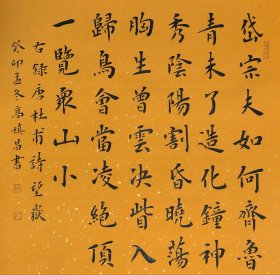 岱宗夫如何齊魯
青未了造化鐘神
秀陰陽割昏曉蕩
胸生曾雲決眥入
歸鳥會當凌絕頂
一覽眾山小
右錄唐杜甫詩望嶽
癸卯孟冬高慎昌書